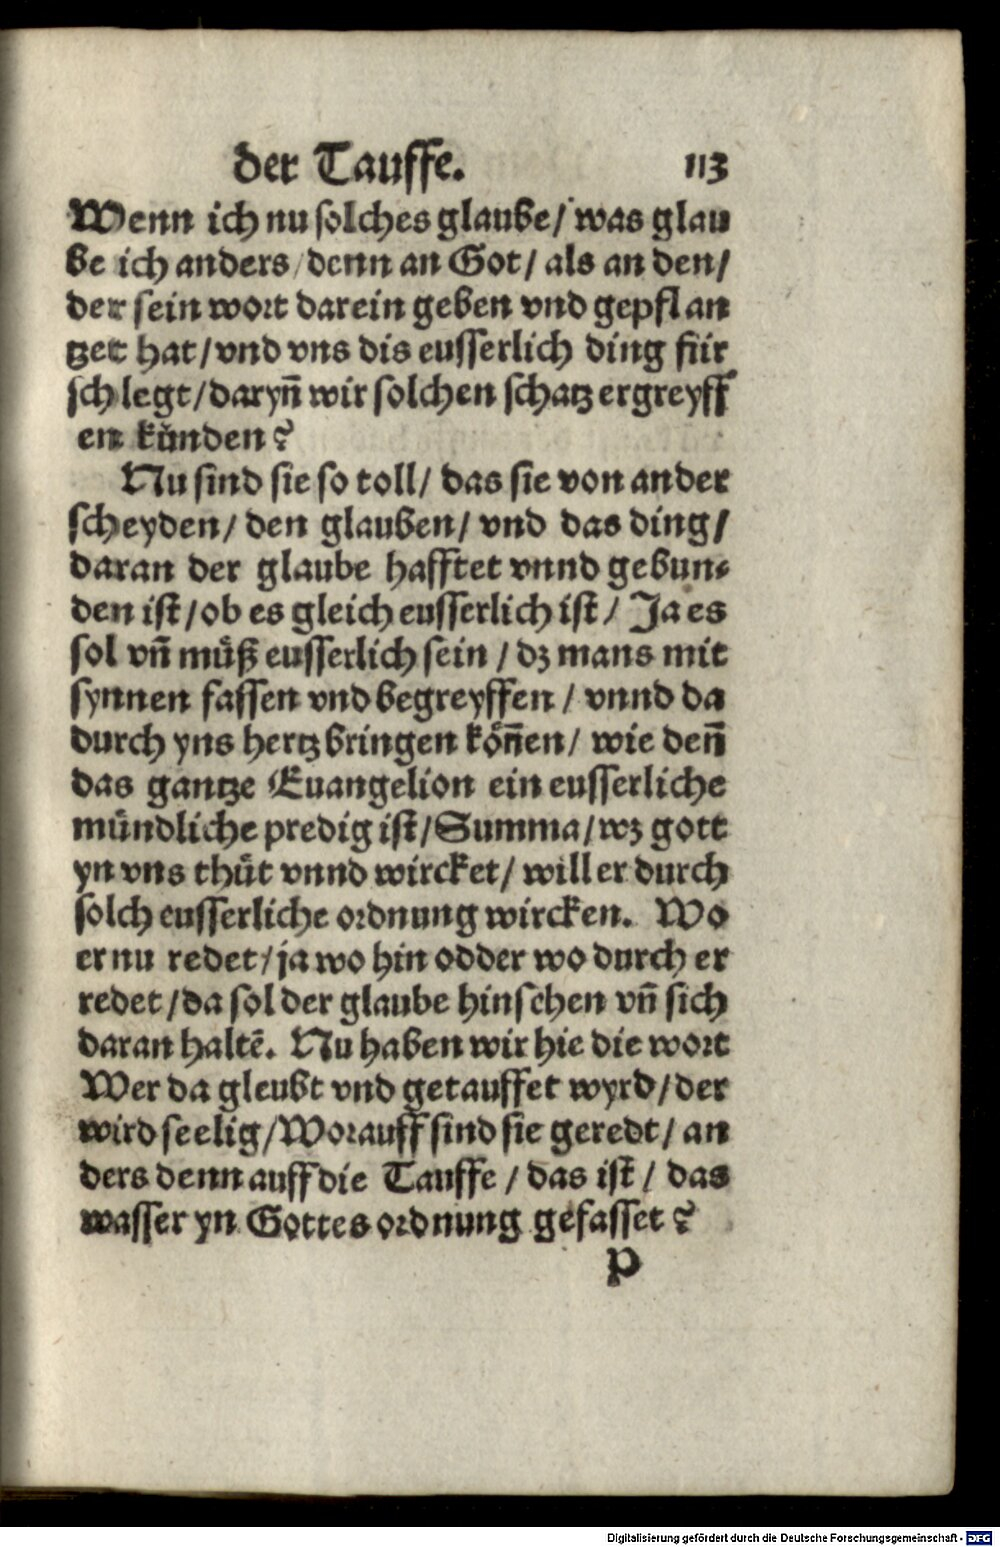 der Tauffe. 113
Wenn ich nu solches glaube/ was glau
be ich anders/ denn an Got/ als an den/
der sein wort darein geben vnd gepflan
tzet hat/ vnd vns dis eusserlich ding für
schlegt/ daryñ wir solchen schatz ergreyff
en künden?
Nu sind sie so toll/ das sie von ander
scheyden/ den glauben/ vnd das ding/
daran der glaube hafftet vnnd gebun-
den ist/ ob es gleich eusserlich ist/ Ja es
sol vñ muͤß eusserlich sein/ dz mans mit
synnen fassen vnd begreyffen/ vnnd da
durch yns hertz bringen koͤñen/ wie deñ
das gantze Euangelion ein eusserliche
mündliche predig ist/ Summa/ wz gott
yn vns thuͤt vnnd wircket/ will er durch
solch eusserliche ordnung wircken. Wo
er nu redet/ ja wo hin odder wo durch er
redet/ da sol der glaube hinsehen vñ sich
daran haltē. Nu haben wir hie die wort
Wer da gleubt vnd getauffet wyrd/ der
wird seelig/ Worauff sind sie geredt/ an
ders denn auff die Tauffe/ das ist/ das
wasser yn Gottes ordnung gefasset?
P
Digitalisierung gefördert durch die Deutsche Forschungsgemeinschaft - DFG